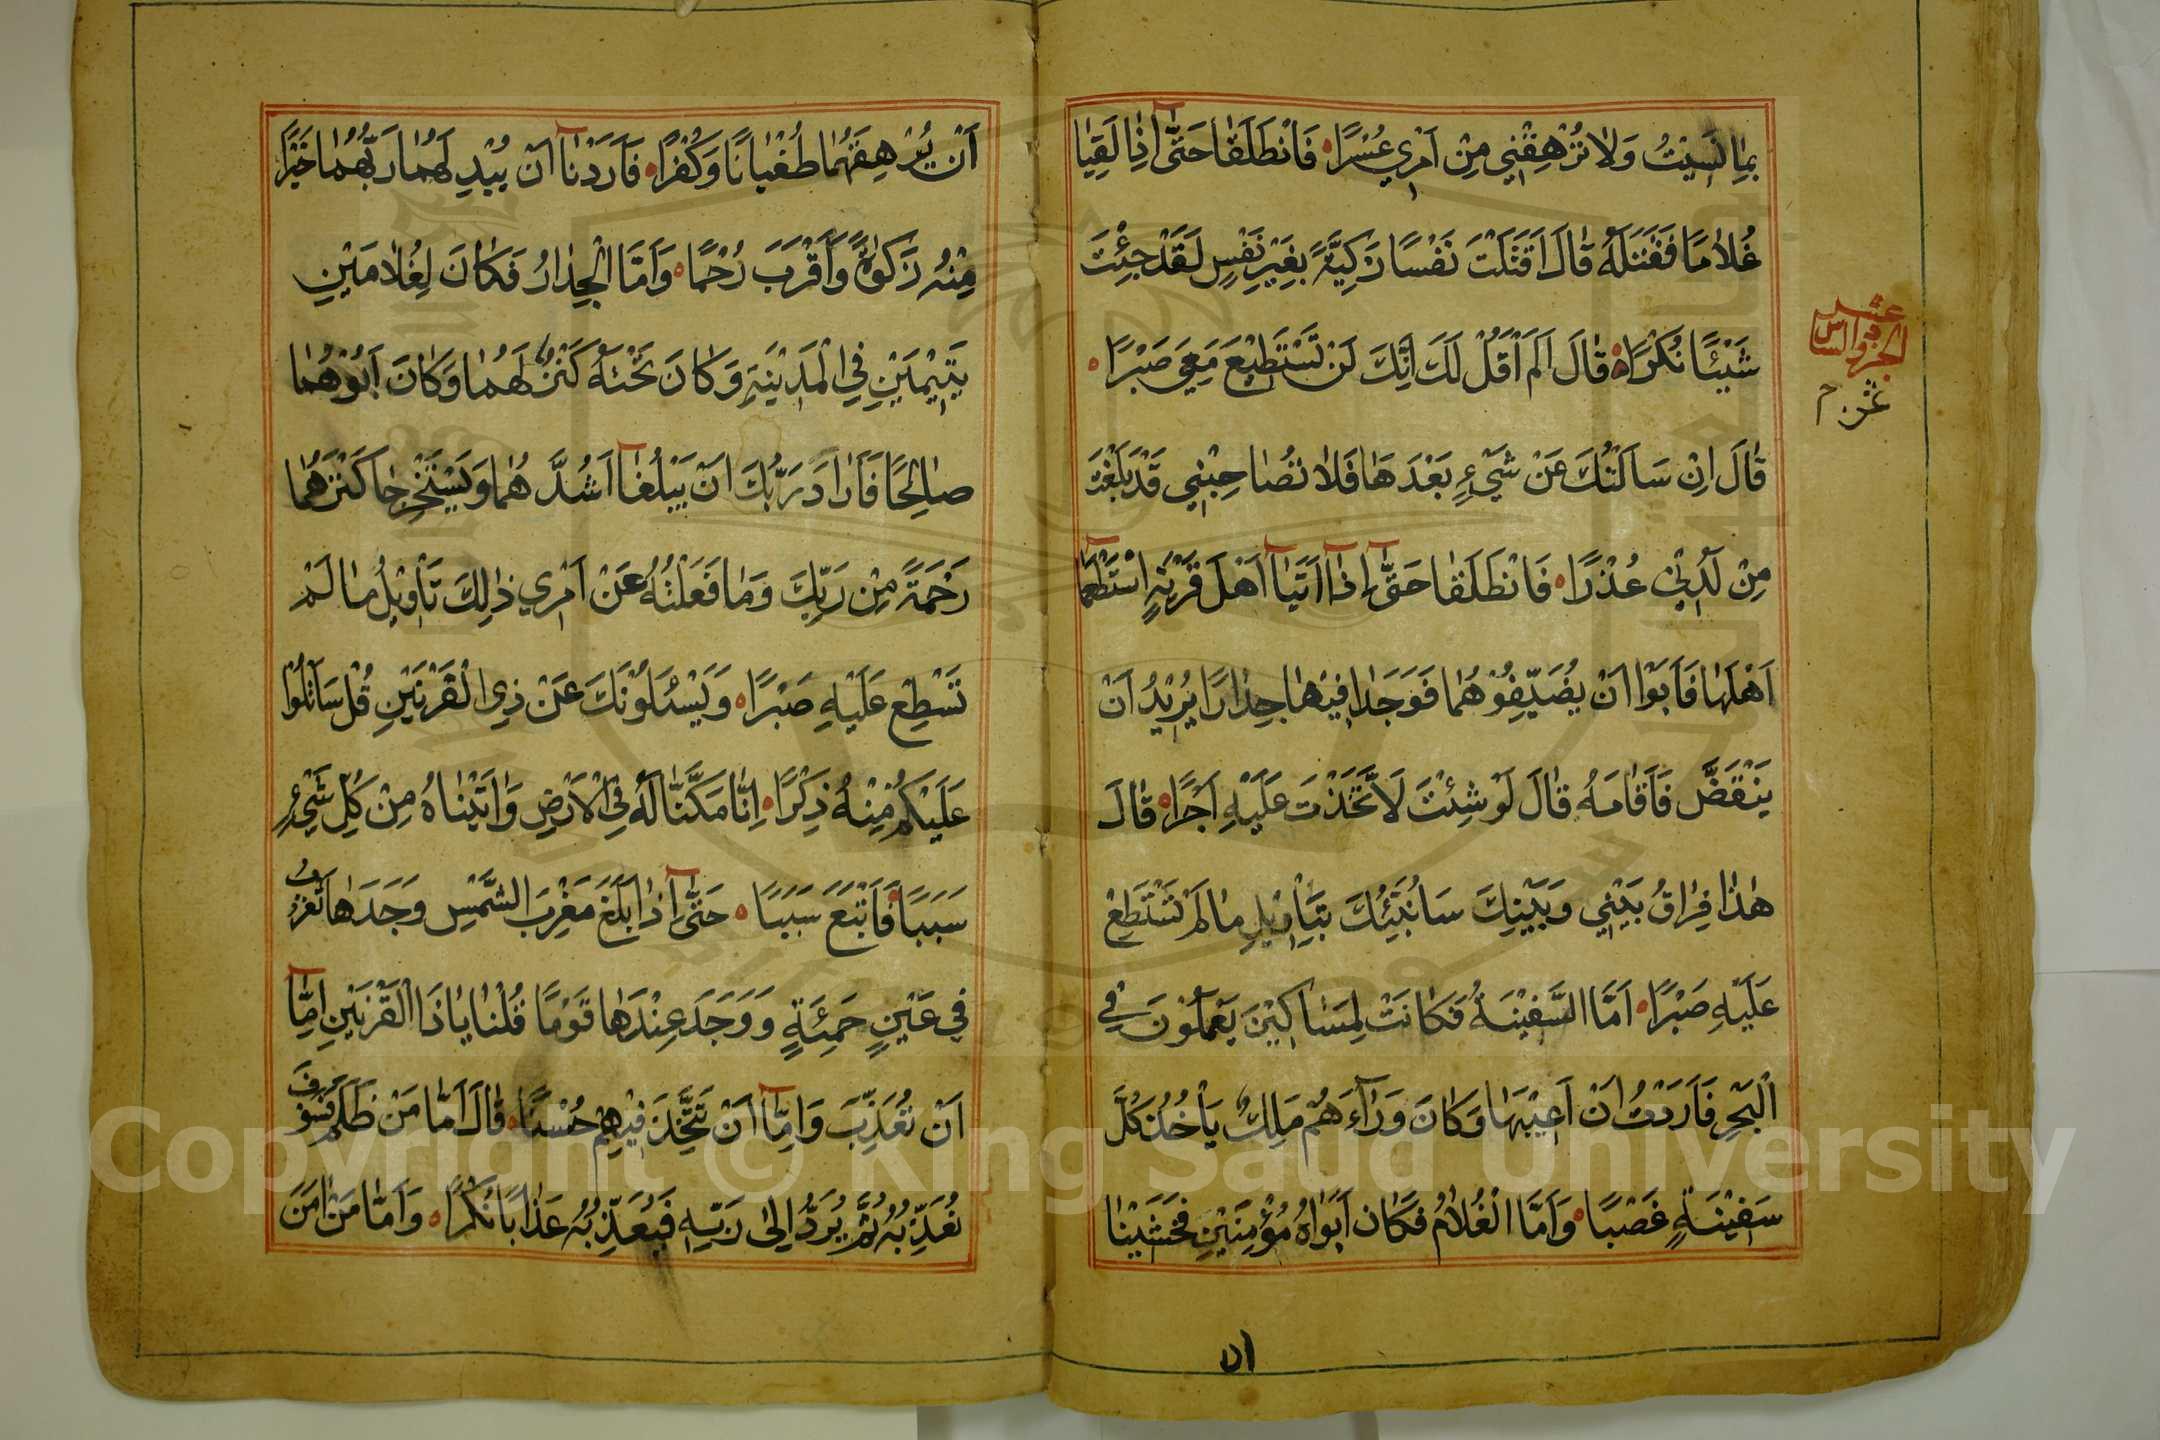 بِمٰا نَسِيْتُ وَلٰا تُرْهِقْنِي مِنْ اَمْرِي عُسْرًا فَانْطَلَقٰا حَتّٰٓى اِذٰا لَقِيٰا
غُلٰامًا فَقَتَلَهُ قٰالَ اَقَتَلْتَ نَفْسًا زَكِيَّةً بِغَيْرِ نَفْسٍ لَقَدْ جِئْتَ
شَيْئًا نُكْرًا قٰالَ اَلَمْ اَقُلْ لَكَ اِنَّكَ لَنْ تَسْتَطِيْعَ مَعِيَ صَبْرًا
قٰالَ اِنْ سَاَلْتُكَ عَنْ شَيْءٍ بَعْدَهٰا فَلٰا تُصٰاحِبْنِي قَدْ بَلَغْتَ
مِنْ لَدُنِّي عُذْرًا فَانْطَلَقٰا حَتّٰٓى اِذٰٓا اَتَيٰٓا اَهْلَ قَرْيَةٍ اسْتَطْعَمٰٓا
اَهْلَهٰا فَاَبَوْا اَنْ يُضَيِّفُوْهُمٰا فَوَجَدٰا فِيْهٰا جِدٰارًا يُرِيْدُ اَنْ
يَنْقَضَّ فَاَقٰامَهُ قٰالَ لَوْ شِئْتَ لَاتَّخَذْتَ عَلَيْهِ اَجْرًا قٰالَ
هٰذٰا فِرٰاقُ بَيْنِي وَبَيْنِكَ سَاُنَبِّئُكَ بِتَاْوِيْلِ مٰا لَمْ تَسْتَطِعْ
عَلَيْهِ صَبْرًا اَمَّا السَّفِيْنَةُ فَكٰانَتْ لِمَسٰاكِيْنَ يَعْمَلُوْنَ فِي
الْبَحْرِ فَاَرَدْتُ اَنْ اَعِيْبَهٰا وَكٰانَ وَرٰٓاءَهُمْ مَلِكٌ يَاْخُذُ كُلَّ
سَفِيْنَةٍ غَصْبًا وَاَمَّا الْغُلٰامُ فَكٰانَ اَبَوٰاهُ مُؤْمِنَيْنِ فَخَشِيْنٰا
الجزو السادس عشر
اَنْ يُرْهِقَهُمٰا طُغْيٰانًا وَكُفْرًا فَاَرَدْنٰٓا اَنْ يُبْدِلَهُمٰا رَبُّهُمٰا خَيْرًا
مِنْهُ زَكٰوةً وَاَقْرَبَ رُحْمًا وَاَمَّا الْجِدٰارُ فَكٰانَ لِغُلٰامَيْنِ
يَتِيْمَيْنِ فِي الْمَدِيْنَةِ وَكٰانَ تَحْتَهُ كَنْزٌ لَهُمٰا وَكٰانَ اَبُوْهُمٰا
صٰالِحًا فَاَرٰادَ رَبُّكَ اَنْ يَبْلُغٰٓا اَشُدَّهُمٰا وَيَسْتَخْرِجٰا كَنْزَهُمٰا
رَحْمَةً مِنْ رَبِّكَ وَمٰا فَعَلْتُهُ عَنْ اَمْرِي ذٰلِكَ تَاْوِيْلُ مٰا لَمْ
تَسْطِعْ عَلَيْهِ صَبْرًا وَيَسْئَلُوْنَكَ عَنْ ذِي الْقَرْنَيْنِ قُلْ سَاَتْلُوْا
عَلَيْكُمْ مِنْهُ ذِكْرًا اِنّٰا مَكَّنّٰا لَهُ فِي الْاَرْضِ وَاٰتَيْنٰاهُ مِنْ كُلِّ شَيْءٍ
سَبَبًا فَاَتْبَعَ سَبَبًا حَتّٰٓى اِذٰا بَلَغَ مَغْرِبَ الشَّمْسِ وَجَدَهٰا تَغْرُبُ
فِي عَيْنٍ حَمِئَةٍ وَوَجَدَ عِنْدَهٰا قَوْمًا قُلْنٰا يٰا ذَا الْقَرْنَيْنِ اِمّٰٓا
اَنْ تُعَذِّبَ وَاِمّٰٓا اَنْ تَتَّخِذَ فِيْهِمْ حُسْنًا قٰالَ اَمّٰا مَنْ ظَلَمَ فَسَوْفَ
نُعَذِّبُهُ ثُمَّ يُرَدُّ اِلٰى رَبِّهِ فَيُعَذِّبُهُ عَذٰابًا نُكْرًا وَاَمّٰا مَنْ اٰمَنَ
Copyright © King Saud University